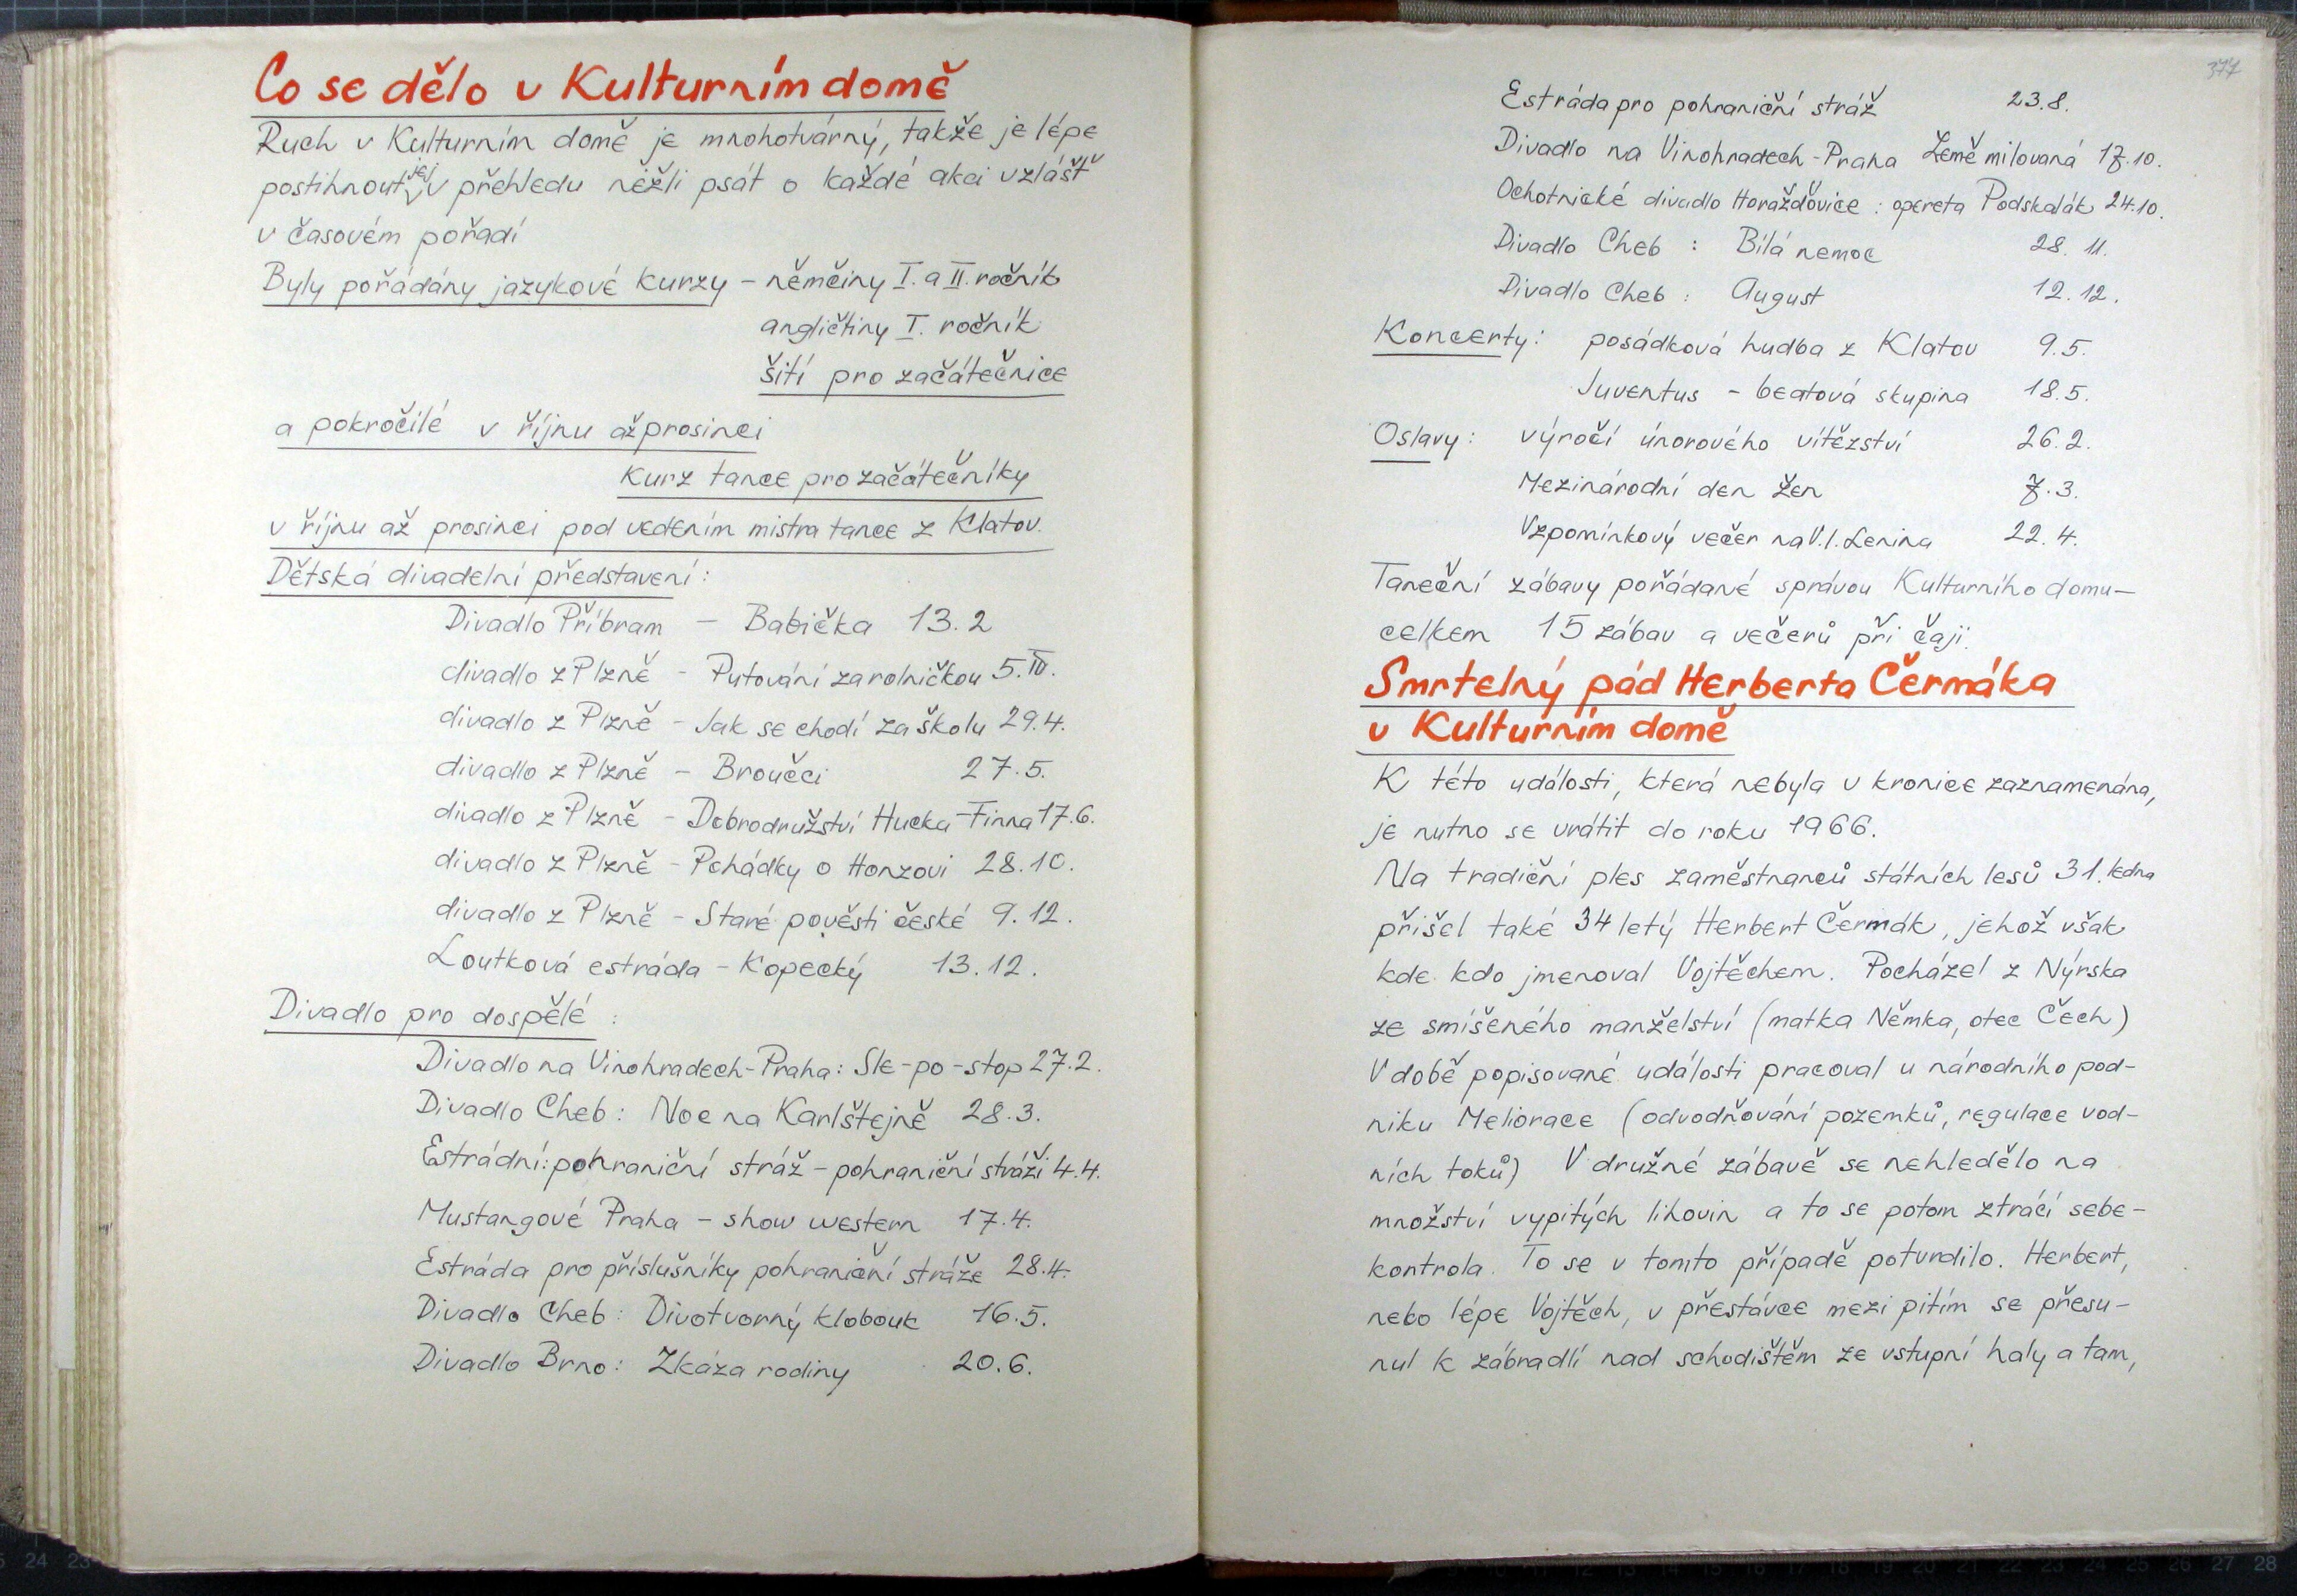 Co se dělo v Kulturním domě
Ruch v Kulturním domě je mnohotvárný, takže je lépe
postihnout jej v přehledu nežli psát o každé akci vzlášť
v časovém pořadí
Byly pořádány jazykové kurzy – němčiny I. a II. ročník
angličtiny I. ročník
šití pro začátečnice
a pokročilé v říjnu až prosinci
Kurz tance pro začátečníky
v říjnu až prosinci pod vedením mistra tance z Klatov.
Dětská divadelní představení:
Divadlo Příbram – Babička 13.2
divadlo z Plzně - Putování za rolničkou 5.III.
divadlo z Plzně - Jak se chodí za školu 29.4.
divadlo z Plzně - Broučci 27.5.
divadlo z Plzně - Dobrodružství Hucka Finna 17.6.
divadlo z Plzně - Pohádky o Honzovi 28.10.
divadlo z Plzně - Staré pověsti české 9.12.
Loutková estráda - Kopecký 13.12.
Divadlo pro dospělé :
Divadlo na Vinohradech-Praha: Sle-po-stop 27.2.
Divadlo Cheb: Noc na Karlštejně 28.3.
Estrádní: pohraniční stráž - pohraniční stráži 4.4.
Mustangové Praha - show western 17.4.
Estráda pro příslušníky pohraniční stráže 28.4.
Divadlo Cheb: Divotvorný klobouk 16.5.
Divadlo Brno: Zkáza rodiny 20.6.
377
Estráda pro pohraniční stráž 23.8.
Divadlo na Vinohradech-Praha Země milovaná 17.10.
Ochotnické divadlo Horažďovice : opereta Podskalák 24.10.
Divadlo Cheb : Bílá nemoc 28.11.
Divadlo Cheb : August 12.12.
Koncerty: posádková hudba z Klatov 9.5.
Juventus - beatová skupina 18.5.
Oslavy: výročí únorového vítězství 26.2.
Mezinárodní den žen 7.3.
Vzpomínkový večer na V.I. Lenina 22.4.
Taneční zábavy pořádané správou Kulturního domu –
celkem 15 zábav a večerů při čaji.
Smrtelný pád Herberta Čermáka
v Kulturním domě
K této události, která nebyla v kronice zaznamenána,
je nutno se vrátit do roku 1966.
Na tradiční ples zaměstnanců státních lesů 31. ledna
přišel také 34 letý Herbert Čermák, jehož však
kde kdo jmenoval Vojtěchem. Pocházel z Nýrska
ze smíšeného manželství (matka Němka, otec Čech)
V době popisované události pracoval u národního pod-
niku Meliorace (odvodňování pozemků, regulace vod-
ních toků) V družné zábavě se nehledělo na
množství vypitých lihovin a to se potom ztrácí sebe-
kontrola. To se v tomto případě potvrdilo. Herbert,
nebo lépe Vojtěch, v přestávce mezi pitím se přesu-
nul k zábradlí nad schodištěm ze vstupní haly a tam,